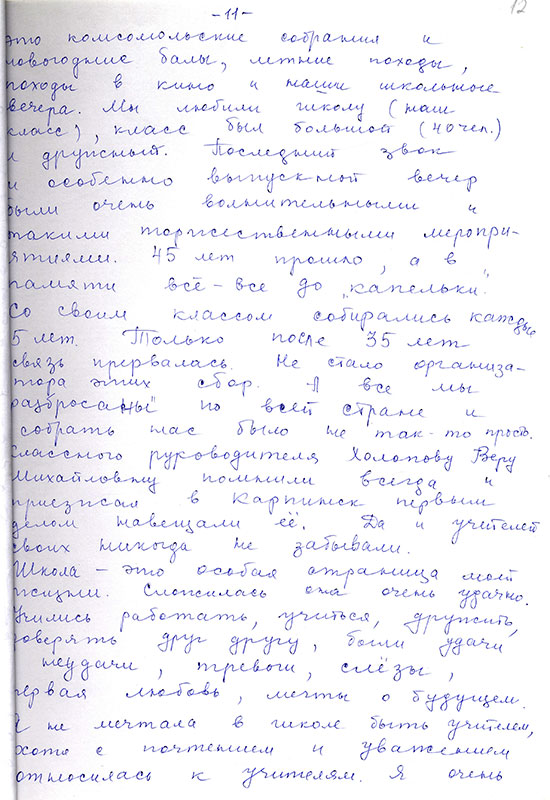 12
-11-
это комсомольские собрания и
новогодние балы, летние походы,
походы в кино и наши школьные
вечера. Мы любили школу (наш
класс), класс был большой (40 чел.)
и дружный. Последний звок
и особенно выпускной вечер
были очень волнительными и
такими торжественными меропри-
ятиями. 45 лет прошло, а в
памяти всё-все до „капельки".
Со своим классом собирались каждые
5 лет. Только после 35 лет
связь прервалась. Не стало организа-
тора этих сбор. А все мы
разбросаны по всей стране и
собрать нас было не так-то просто.
Классного руководителя Холопову Веру
Михайловну помнили всегда и
приезжая в Карпинск первым
делом навещали её. Да и учителей
своих никогда не забывали.
Школа – это особая страница моей
жизни. Сложилась она очень удачно.
Учились работать, учиться, дружить,
доверять друг другу, были удачи
и неудачи, тревоги, слёзы,
первая любовь, мечты о будущем.
Я не мечтала в школе быть учителем,
хотя с почтением и уважением
относилась к учителям. Я очень